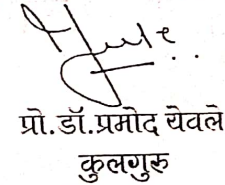 प्रो.डॉ.प्रमोद येवले
कुलगुरू